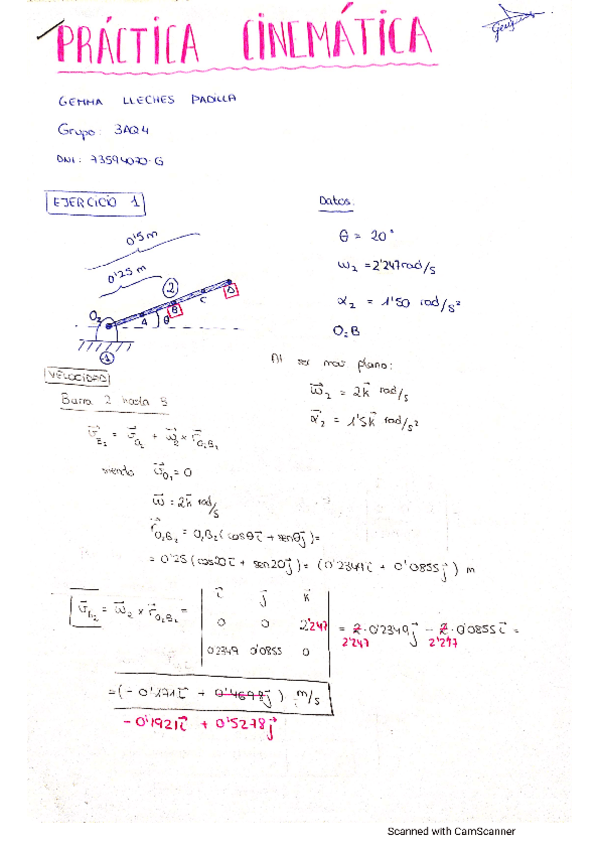 PRÁCTICA CINEMÁTICA
GEMMA LLECHES PADILLA
Grupo: 3AQ4
DNI: 73594070-G
EJERCICIO 1
Datos:
0'5m
0'25 m
2
O₂ A θ B C D
1
θ = 20°
ω₂ = 2'247 rad/s
α₂ = 1'50 rad/s²
O₂B
Al ser mov plano:
ω⃗₂ = 2k⃗ rad/s
α⃗₂ = 1'5k⃗ rad/s²
VELOCIDAD
Barra 2 hasta B
v⃗B₂ = v⃗O₂ + ω⃗₂ × r⃗O₂B₂
siendo v⃗O₂ = 0
ω⃗ = 2k⃗ rad/s
r⃗O₂B₂ = O₂B₂ (cosθ i⃗ + senθ j⃗) =
= 0'25 (cos20 i⃗ + sen20 j⃗) = (0'2349 i⃗ + 0'0855 j⃗) m
v⃗B₂ = ω⃗₂ × r⃗O₂B₂ =
i⃗ j⃗ k⃗
0 0 2'247
0'2349 0'0855 0
= 2·0'2349 j⃗ − 2·0'0855 i⃗ =
2'247 2'247
= (-0'171 i⃗ + 0'4698 j⃗) m/s
-0'1921 i⃗ + 0'5278 j⃗
Scanned with CamScanner